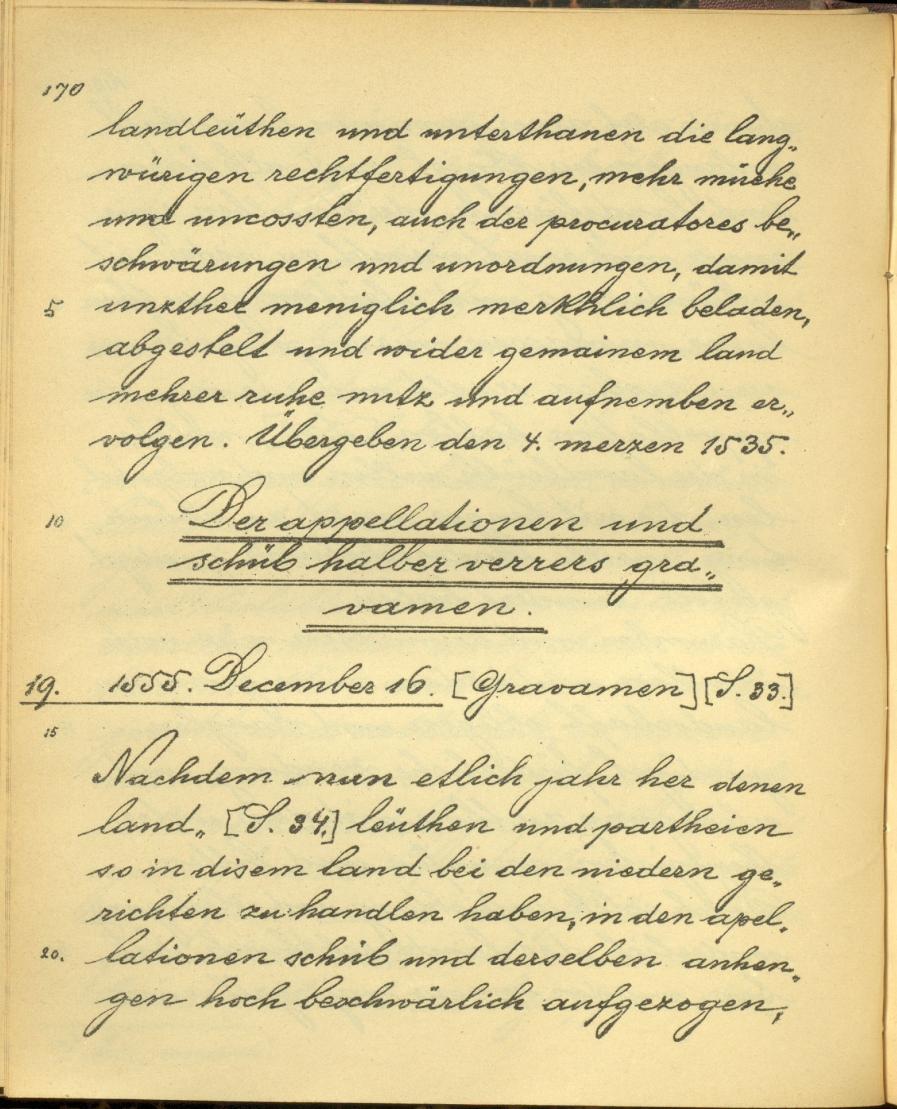 170
landleüthen und unterthanen die lang„
würigen rechtfertigungen, mehr müehe
und uncossten, auch der procuratores be„
schwärungen und unordnungen, damit
5 unzther meniglich merkhlich beladen,
abgestelt und wider gemainem land
mehrer ruhe nutz und aufnemben er„
volgen. Übergeben den 4. merzen 1535.
10 Der appellationen und
schüb halber verrers gra„
vamen.
19. 1555. December 16. [Gravamen] [S. 33.]
15
Nachdem nun etlich jahr her denen
land„ [S. 34.] leüthen und partheien
so in disem land bei den niedern ge„
richten zu handlen haben, in den apel„
20. lationen schüb und derselben anhen„
gen hoch beschwärlich aufgezogen,